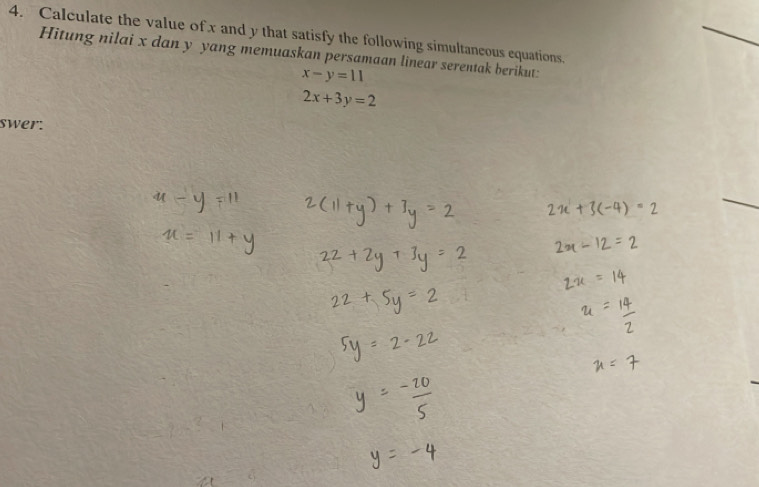 4. Calculate the value of x and y that satisfy the following simultaneous equations.
Hitung nilai x dan y yang memuaskan persamaan linear serentak berikut:
x - y = 11
2x + 3y = 2
swer:
x - y = 11
x = 11 + y
2(11 + y) + 3y = 2
22 + 2y + 3y = 2
22 + 5y = 2
5y = 2 - 22
y = -20/5
y = -4
2x + 3(-4) = 2
2x - 12 = 2
2x = 14
x = 14/2
x = 7